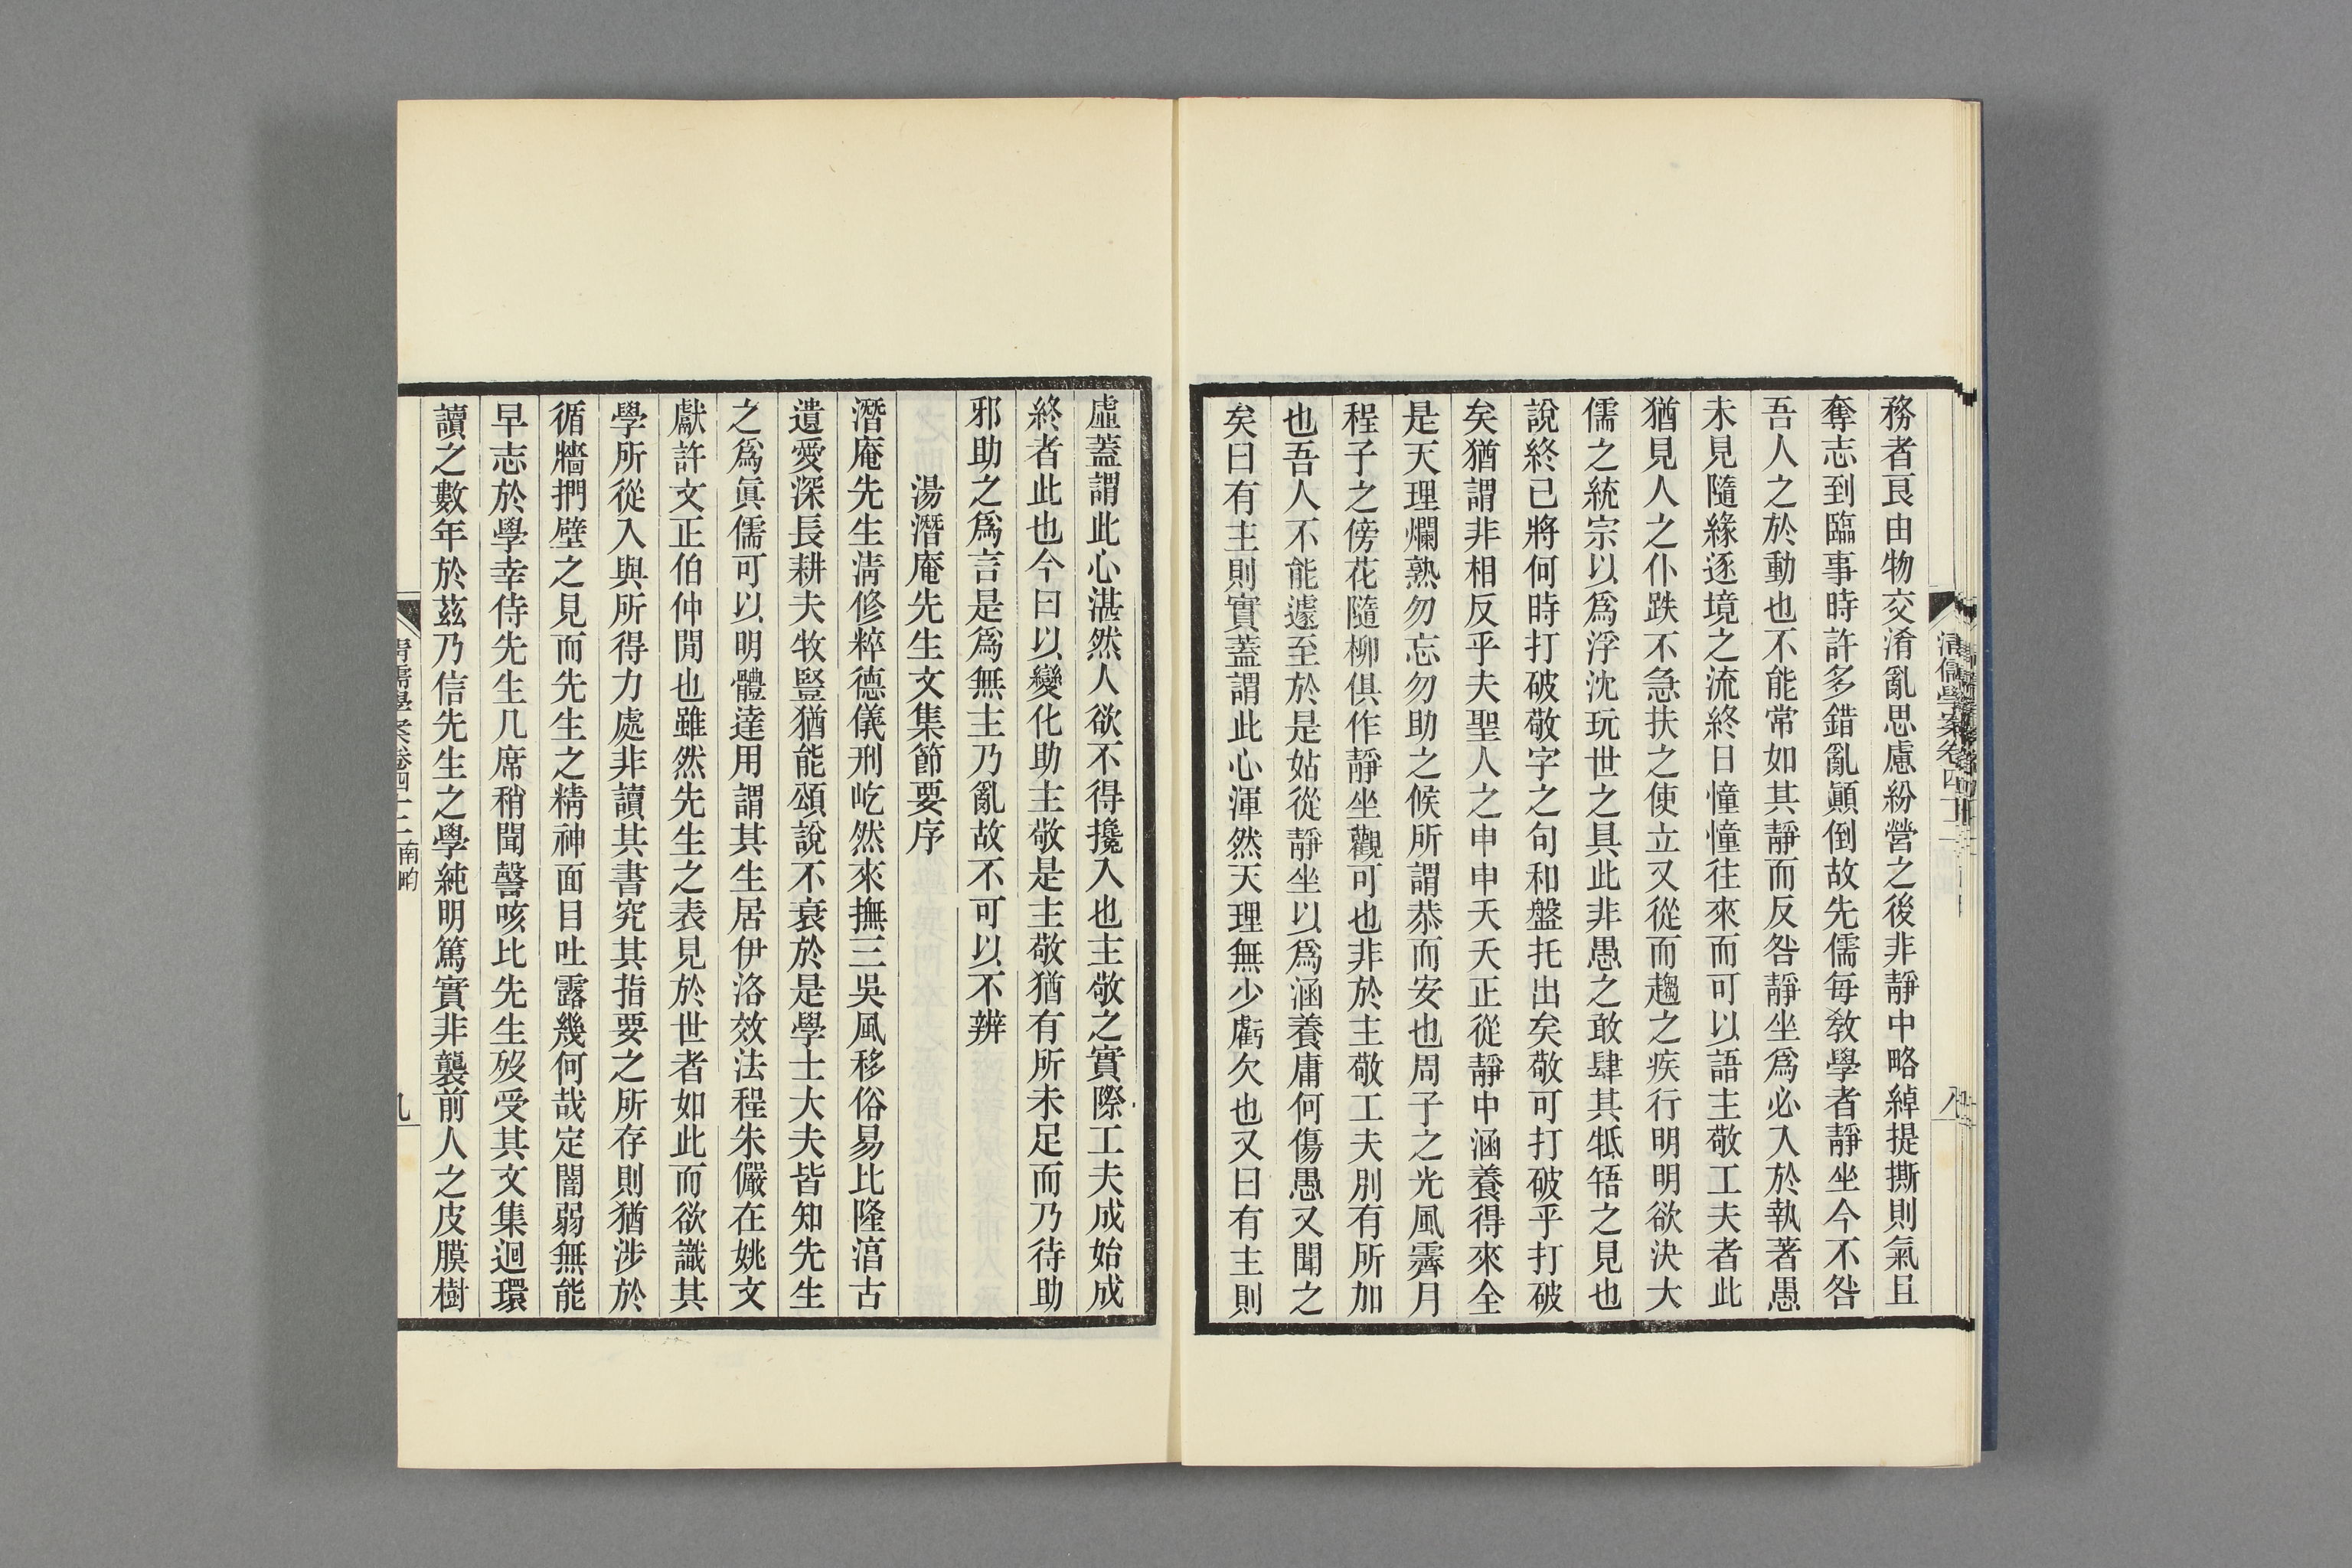 務者良由物交淆亂思慮紛營之後非靜中略綽提撕則氣且
奪志到臨事時許多錯亂顚倒故先儒每敎學者靜坐今不咎
吾人之於動也不能常如其靜而反咎靜坐爲必入於執著愚
未見隨緣逐境之流終日憧憧往來而可以語主敬工夫者此
猶見人之仆跌不急扶之使立又從而趨之疾行明明欲決大
儒之統宗以爲浮沈玩世之具此非愚之敢肆其牴牾之見也
說終已將何時打破敬字之句和盤托出矣敬可打破乎打破
矣猶謂非相反乎夫聖人之申申夭夭正從靜中涵養得來全
是天理爛熟勿忘勿助之候所謂恭而安也周子之光風霽月
程子之傍花隨柳俱作靜坐觀可也非於主敬工夫別有所加
也吾人不能遽至於是姑從靜坐以爲涵養庸何傷愚又聞之
矣曰有主則實蓋謂此心渾然天理無少虧欠也又曰有主則
清儒學案卷四十二
八
虛蓋謂此心湛然人欲不得攙入也主敬之實際工夫成始成
終者此也今曰以變化助主敬是主敬猶有所未足而乃待助
邪助之爲言是爲無主乃亂故不可以不辨
湯潛庵先生文集節要序
潛庵先生淸修粹德儀刑屹然來撫三吳風移俗易比隆湻古
遺愛深長耕夫牧豎猶能頌說不衰於是學士大夫皆知先生
之爲眞儒可以明體達用謂其生居伊洛效法程朱儼在姚文
獻許文正伯仲閒也雖然先生之表見於世者如此而欲識其
學所從入與所得力處非讀其書究其指要之所存則猶涉於
循牆捫壁之見而先生之精神面目吐露幾何哉定闇弱無能
早志於學幸侍先生几席稍聞謦咳比先生歿受其文集迴環
讀之數年於茲乃信先生之學純明篤實非襲前人之皮膜樹
清儒學案卷四十二 南畇
九